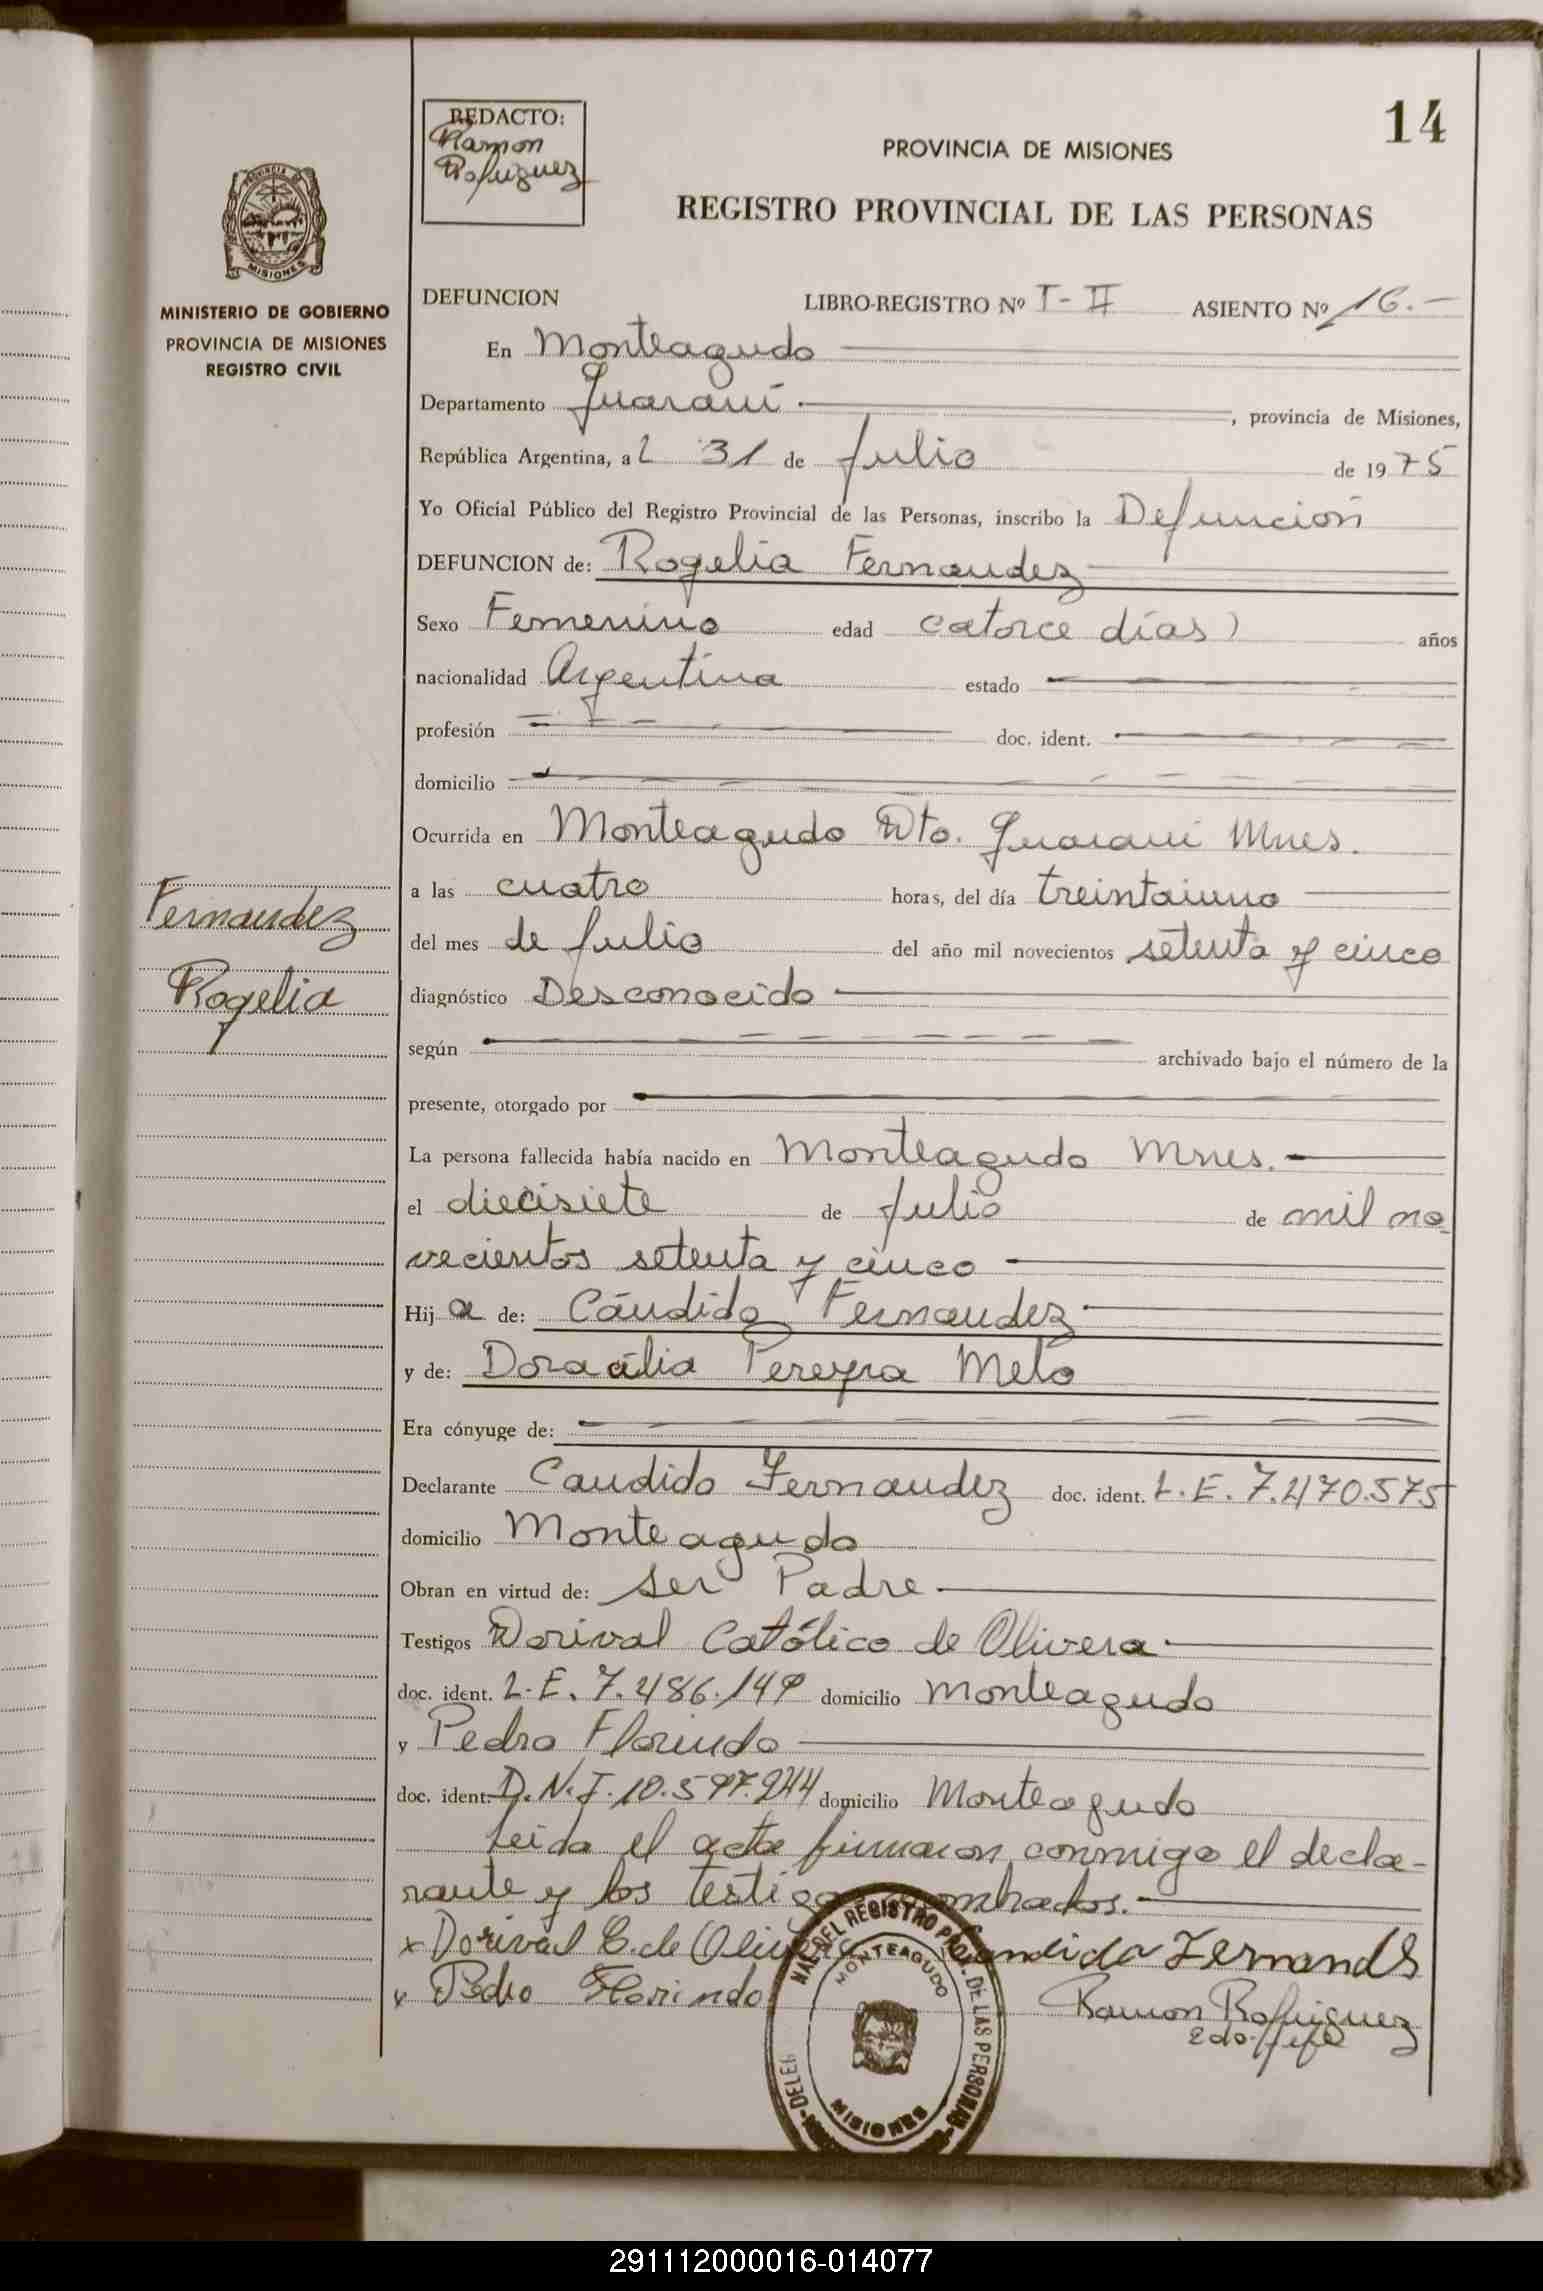 14
REDACTO:
Ramon
Rodriguez
PROVINCIA DE MISIONES
REGISTRO PROVINCIAL DE LAS PERSONAS
PROVINCIA DE
MISIONES
MINISTERIO DE GOBIERNO
PROVINCIA DE MISIONES
REGISTRO CIVIL
DEFUNCION LIBRO-REGISTRO Nº I-II ASIENTO Nº 16.-
En Monteagudo
Departamento Guaraní, provincia de Misiones,
República Argentina, a 31 de Julio de 1975
Yo Oficial Público del Registro Provincial de las Personas, inscribo la Defunción
DEFUNCION de: Rogelia Fernandez
Sexo Femenino edad catorce días) años
nacionalidad Argentina estado
profesión doc. ident.
domicilio
Ocurrida en Monteagudo Dto. Guaraní Mnes.
a las cuatro horas, del día treintaiuno
del mes de Julio del año mil novecientos setenta y cinco
diagnóstico Desconocido
según archivado bajo el número de la
presente, otorgado por
La persona fallecida había nacido en Monteagudo Mnes.
el diecisiete de Julio de mil no
vecientos setenta y cinco
Hija de: Cándido Fernandez
y de: Doraália Pereyra Melo
Era cónyuge de:
Declarante Candido Fernandez doc. ident. L.E. 7.470.575
domicilio Monteagudo
Obran en virtud de: ser Padre
Testigos Dorival Católico de Olivera
doc. ident. L.E. 7.486.149 domicilio Monteagudo
y Pedro Florindo
doc. ident. D.N.I. 10.597.244 domicilio Monteagudo
Leida el acta firmaron conmigo el decla-
rante y los testigos nombrados.
x Dorival C. de Candido Fernandes
x Pedro Florindo Ramon Rodriguez
2do. Jefe
DEL REGISTRO PROV. DE LAS PERSONAS
MONTEAGUDO
MISIONES
Fernandez
Rogelia
291112000016-014077